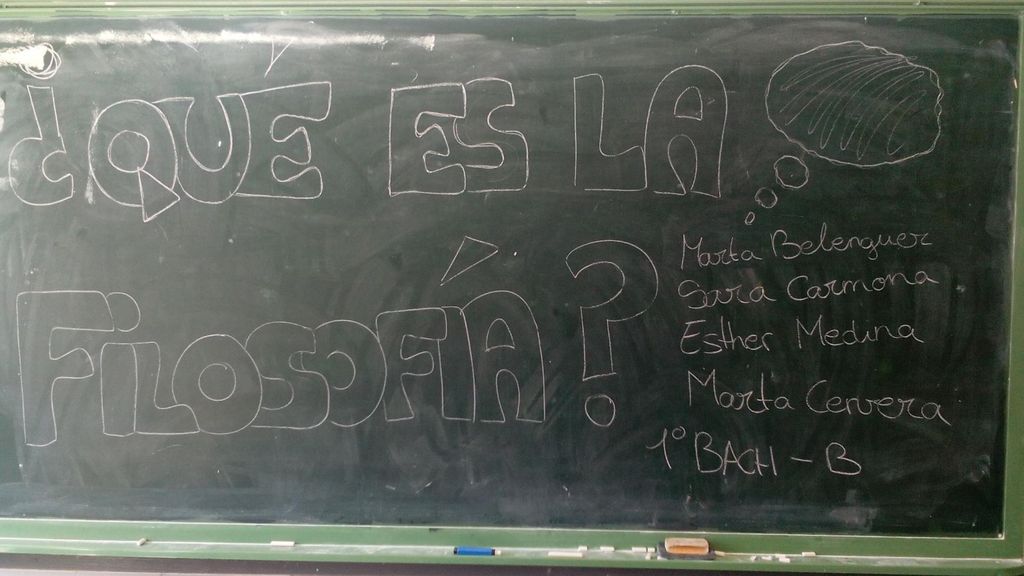 ¿QUÉ ES LA
FILOSOFÍA?
Marta Belenguer
Sara Carmona
Esther Medina
Marta Cervera
1º BACH - B